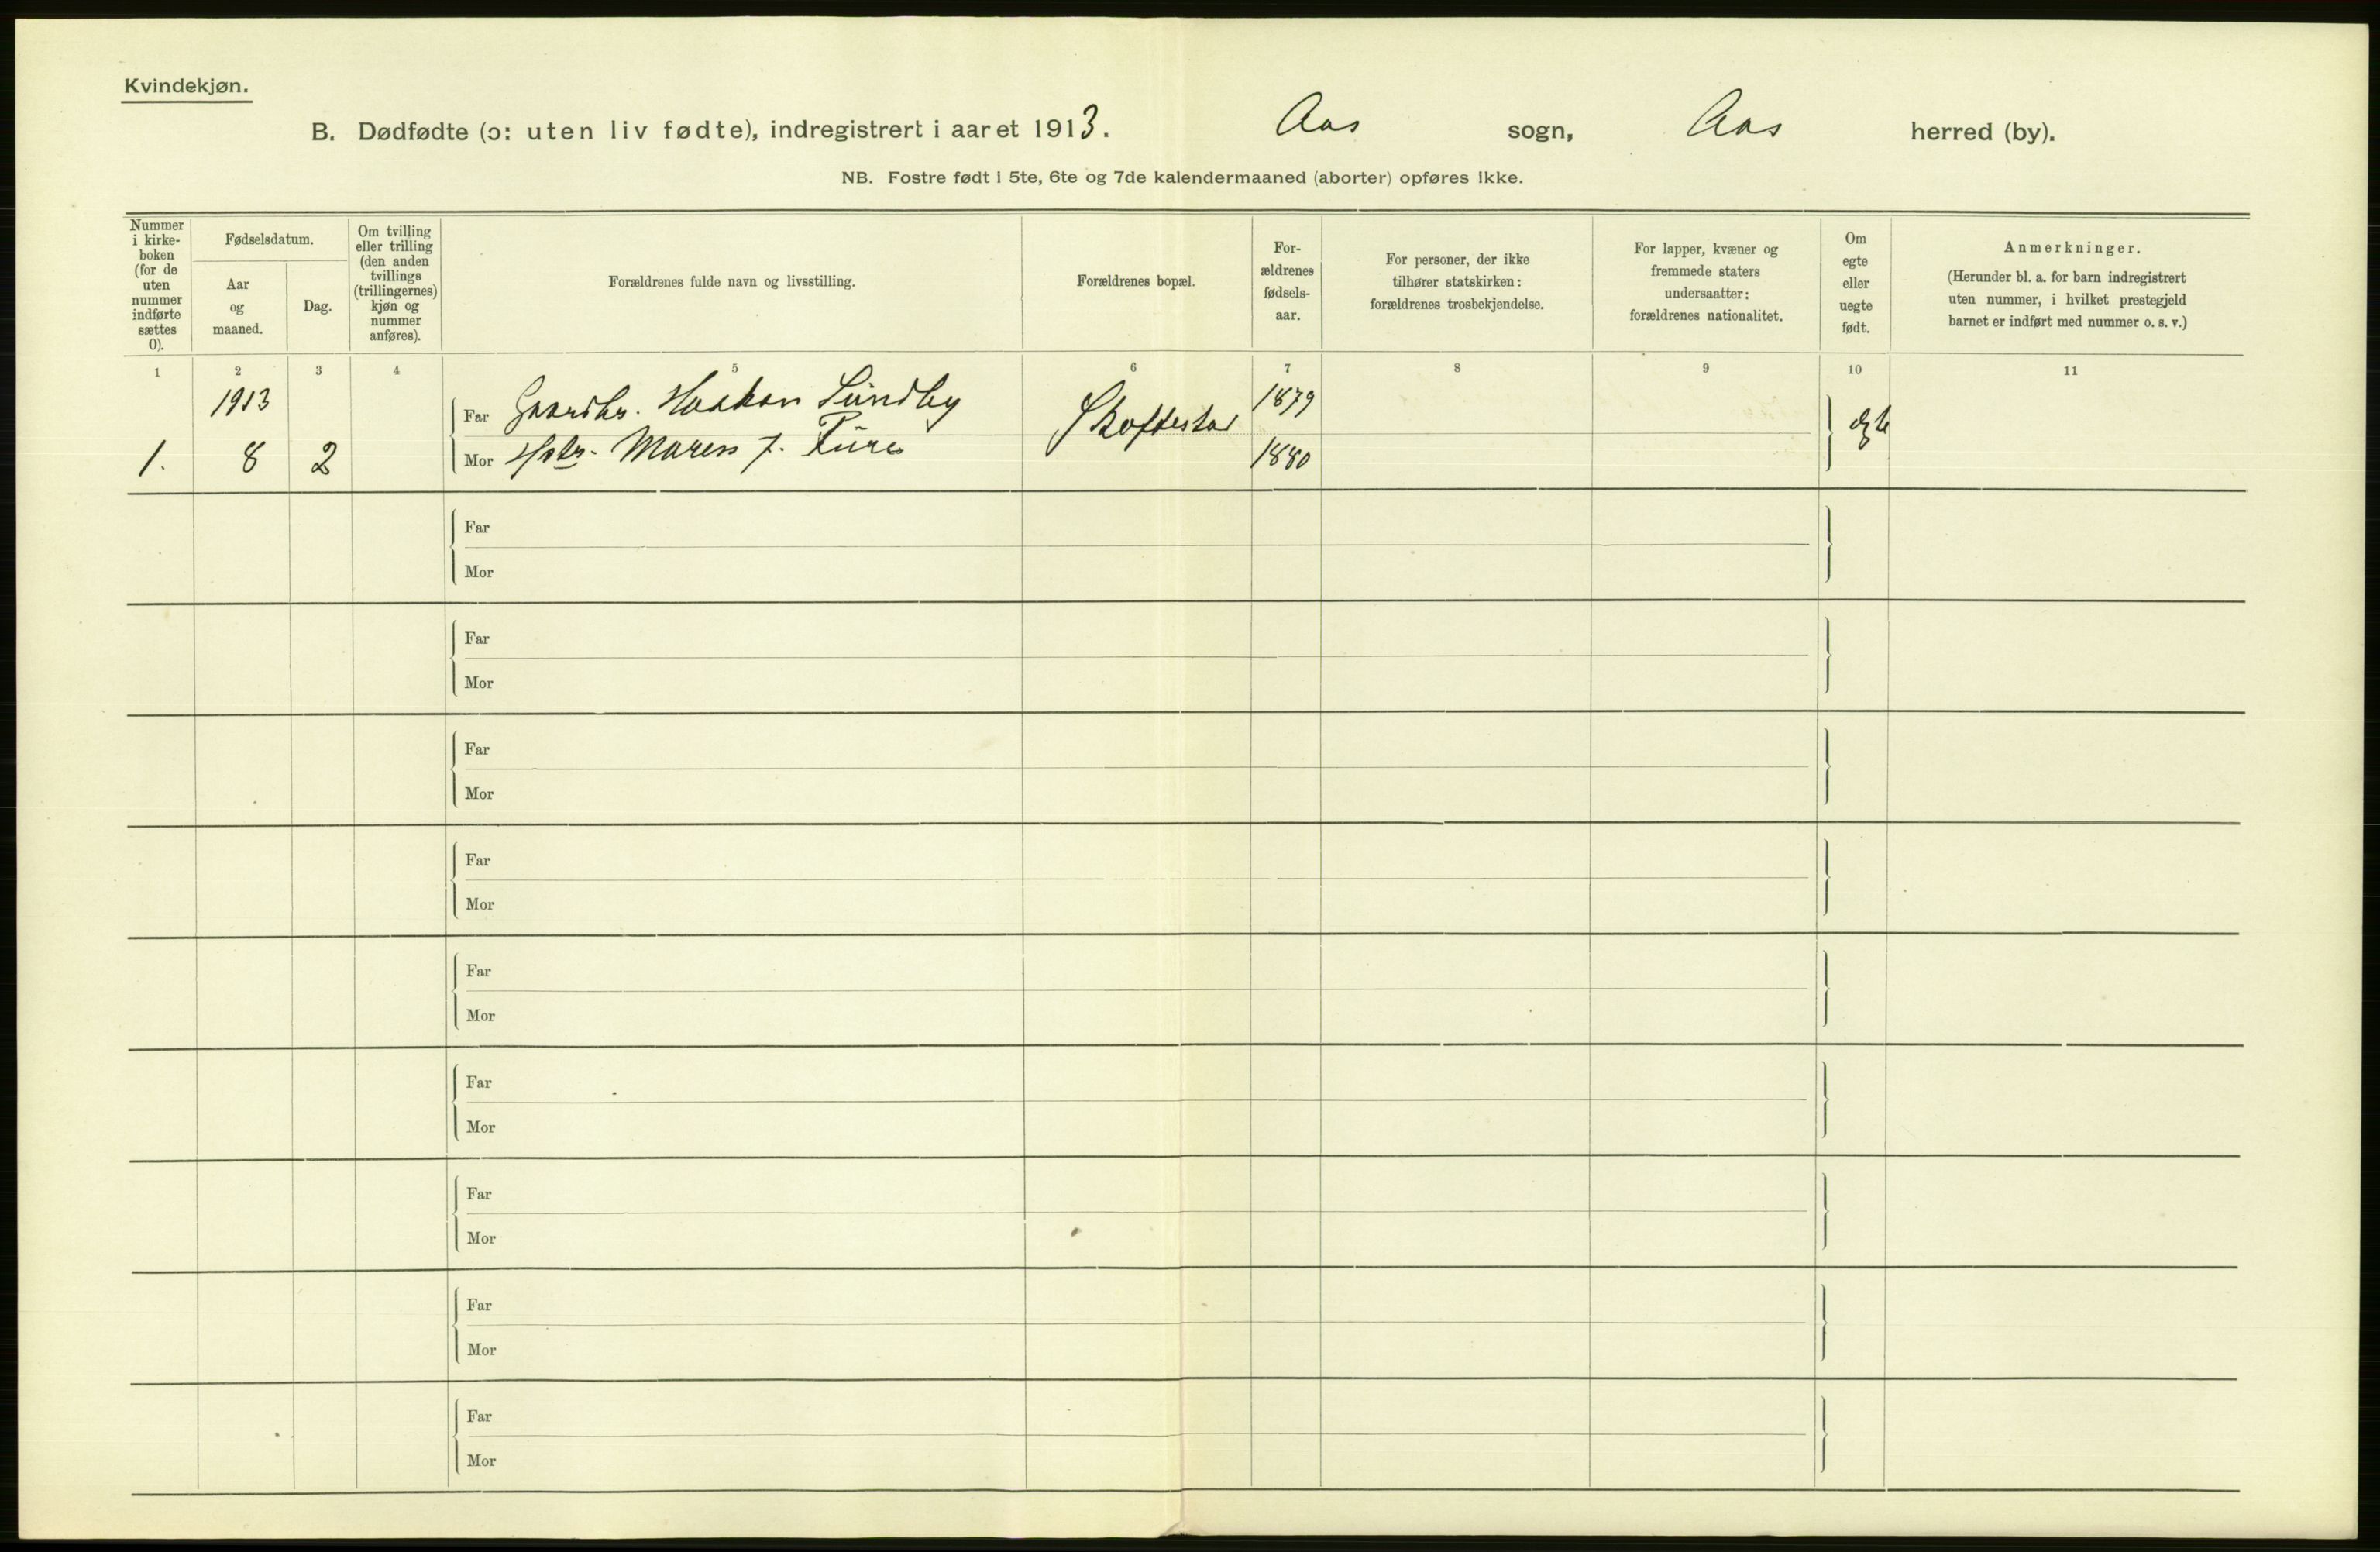 Kvindekjøn.
B. Dødfødte (ɔ: uten liv fødte), indregistrert i aaret 1913. Aas sogn, Aas herred (by).
NB. Fostre født i 5te, 6te og 7de kalendermaaned (aborter) opføres ikke.
Nummer
i kirke-
boken
(for de
uten
nummer
indførte
sættes
0).
Fødselsdatum.
Aar
og
maaned.
Dag.
Om tvilling
eller trilling
(den anden
tvillings
(trillingernes)
kjøn og
nummer
anføres).
Forældrenes fulde navn og livsstilling.
Forældrenes bopæl.
For-
ældrenes
fødsels-
aar.
For personer, der ikke
tilhører statskirken:
forældrenes trosbekjendelse.
For lapper, kvæner og
fremmede staters
undersaatter:
forældrenes nationalitet.
Om
egte
eller
uegte
født.
Anmerkninger.
(Herunder bl. a. for barn indregistrert
uten nummer, i hvilket prestegjeld
barnet er indført med nummer o. s. v.)
1 2 3 4 5 6 7 8 9 10 11
1913
Far Gaardbr. Haakon Sundby 1879
Skoftestad egte
1. 8 2 Mor Hstr. Maren f. 1880
Far
Mor
Far
Mor
Far
Mor
Far
Mor
Far
Mor
Far
Mor
Far
Mor
Far
Mor
Far
Mor